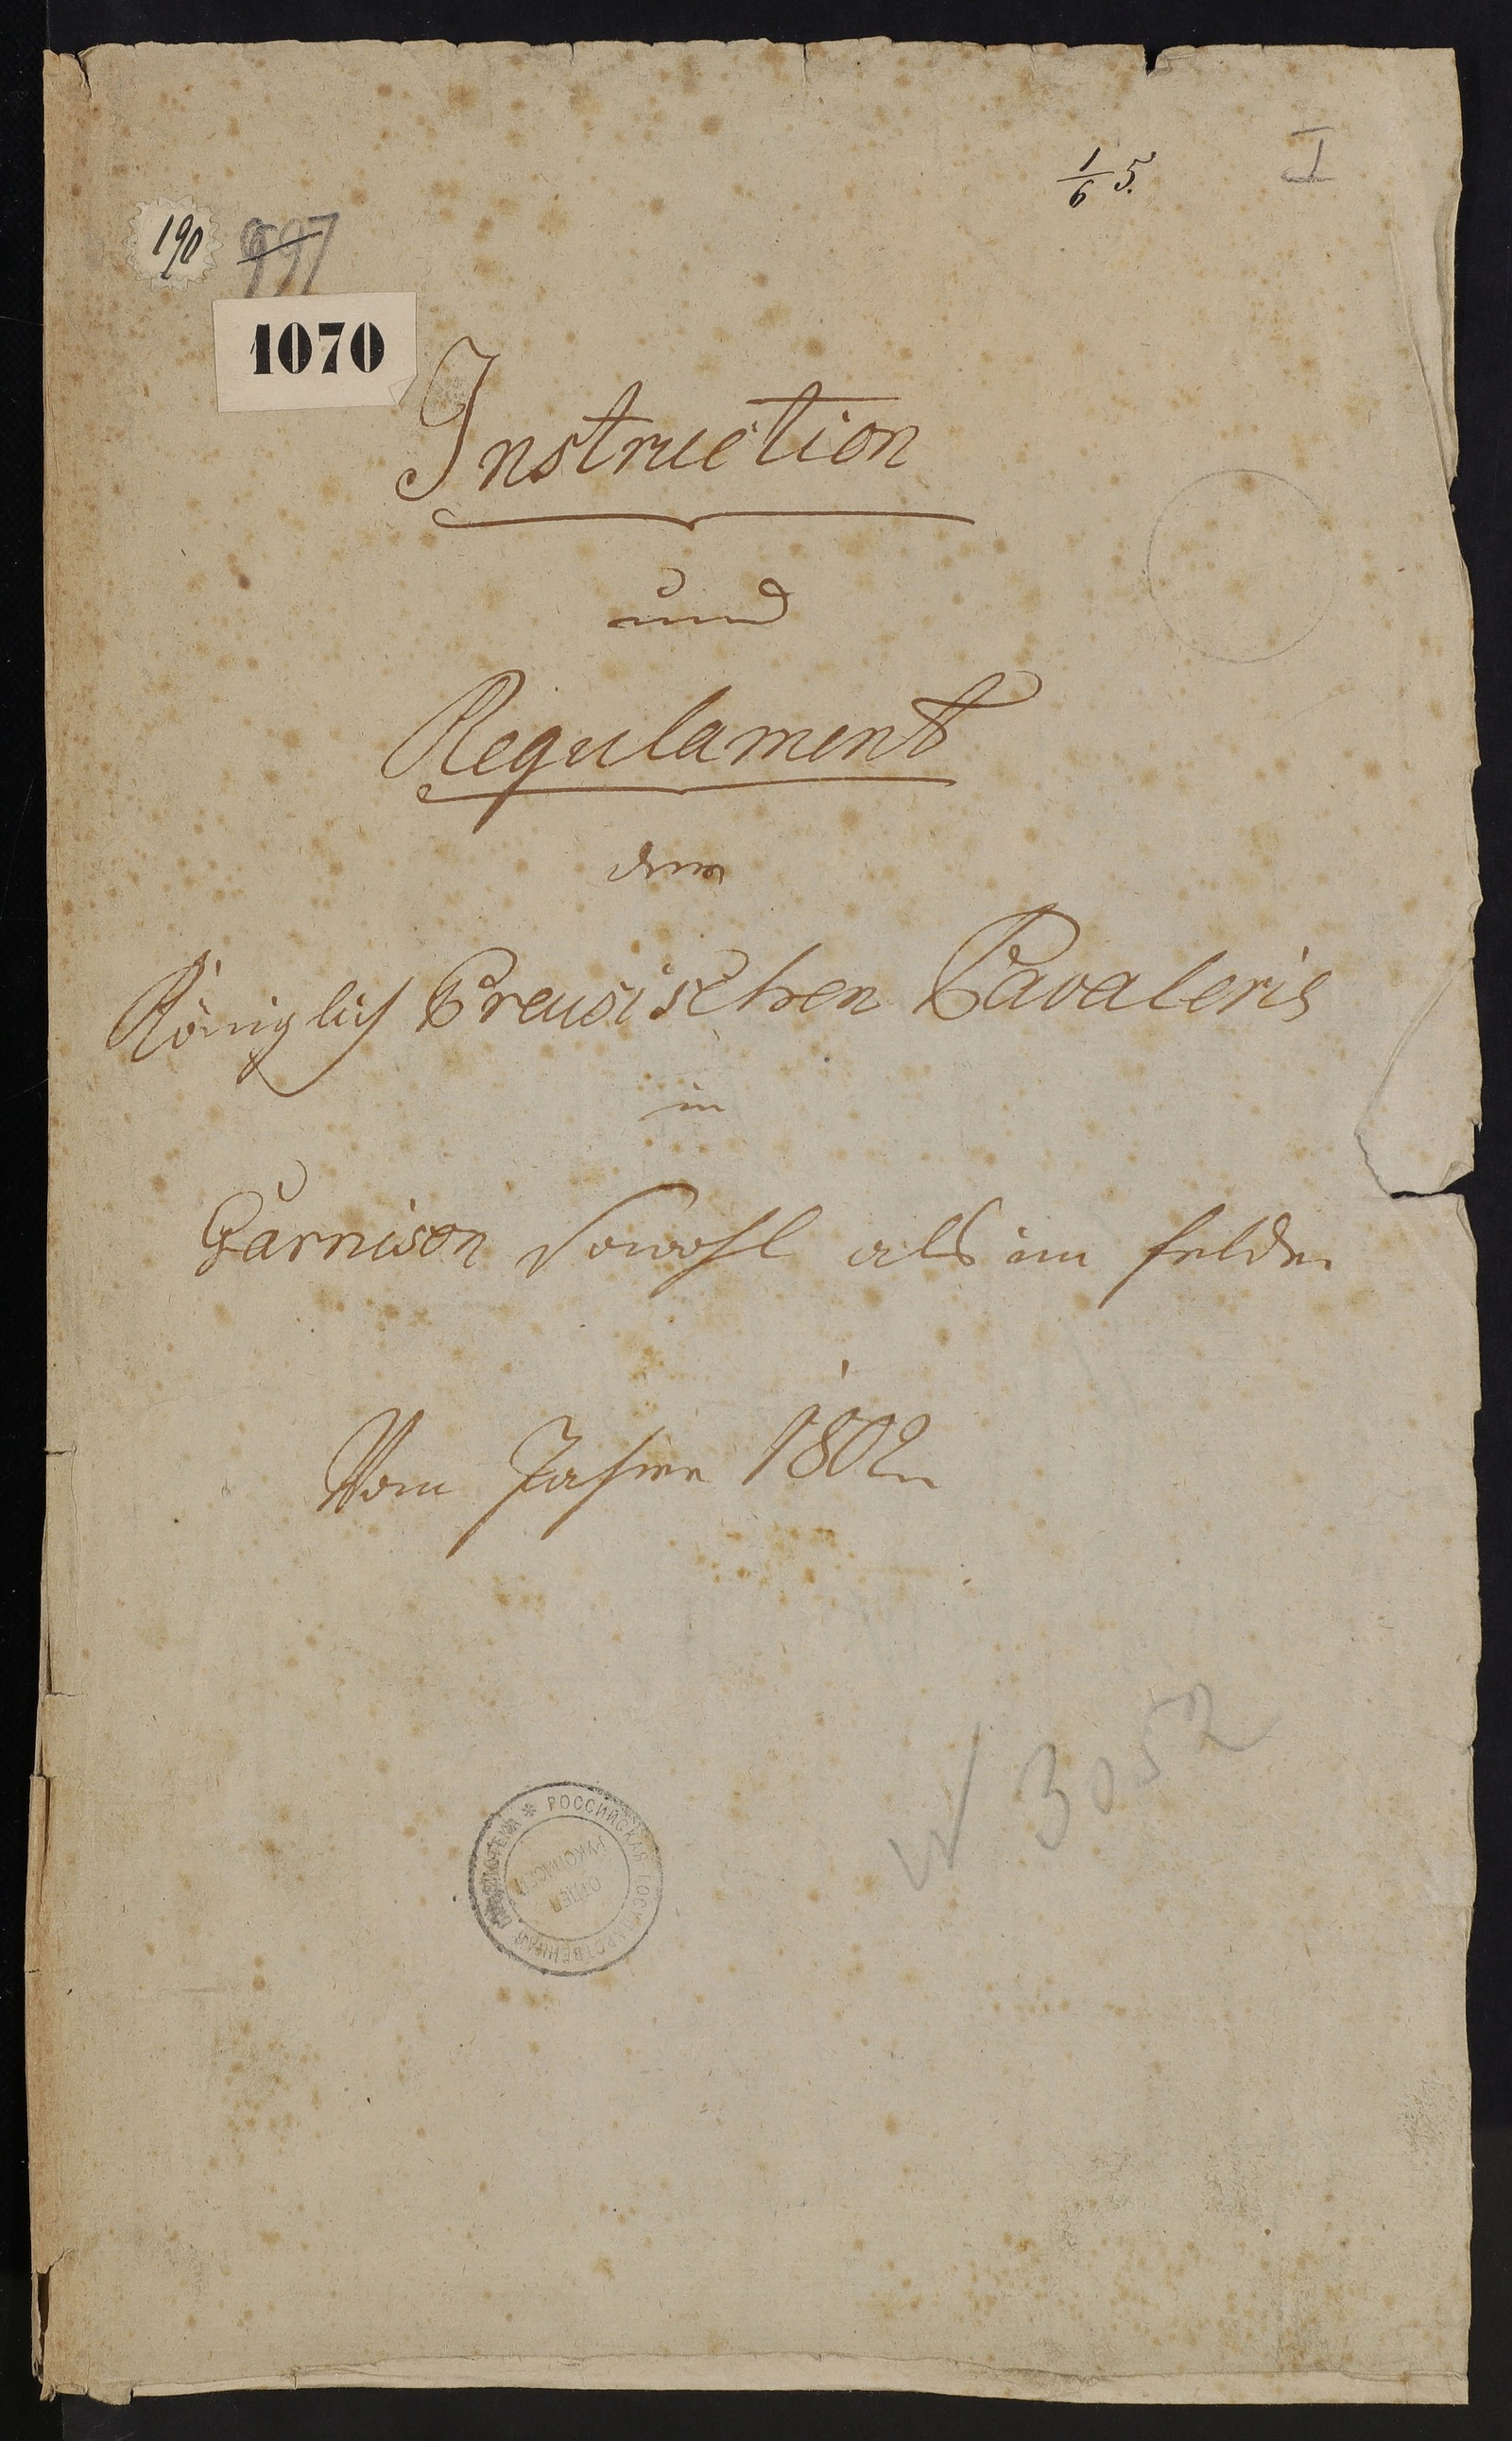 1/6 5. I
190 997
1070
Instruction
und
Regulament
der
Königlich Preusischen Cavalerie
in
Garnison sowohl als im felde
Vom Jahre 1802
W 3052
РОССИЙСКАЯ ГОСУДАРСТВЕННАЯ БИБЛИОТЕКА *
ОТДЕЛ
РУКОПИСЕЙ